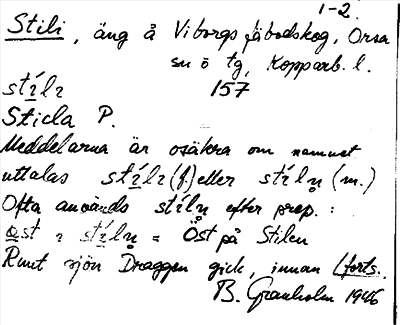 1-2.
Stili, äng å Viborgs fäbodskog, Orsa
sn ö tg, Kopparb. l.
stílɪ 157
Sticla P.
Meddelarna är osäkra om namnet
uttalas stílɪ (f) eller stílṇ (m.)
Ofta används stílṇ efter prep. :
ɷst ɪ stílṇ = Öst på Stilen
Runt sjön Draggen gick, innan (forts.
B. Granholm 1946